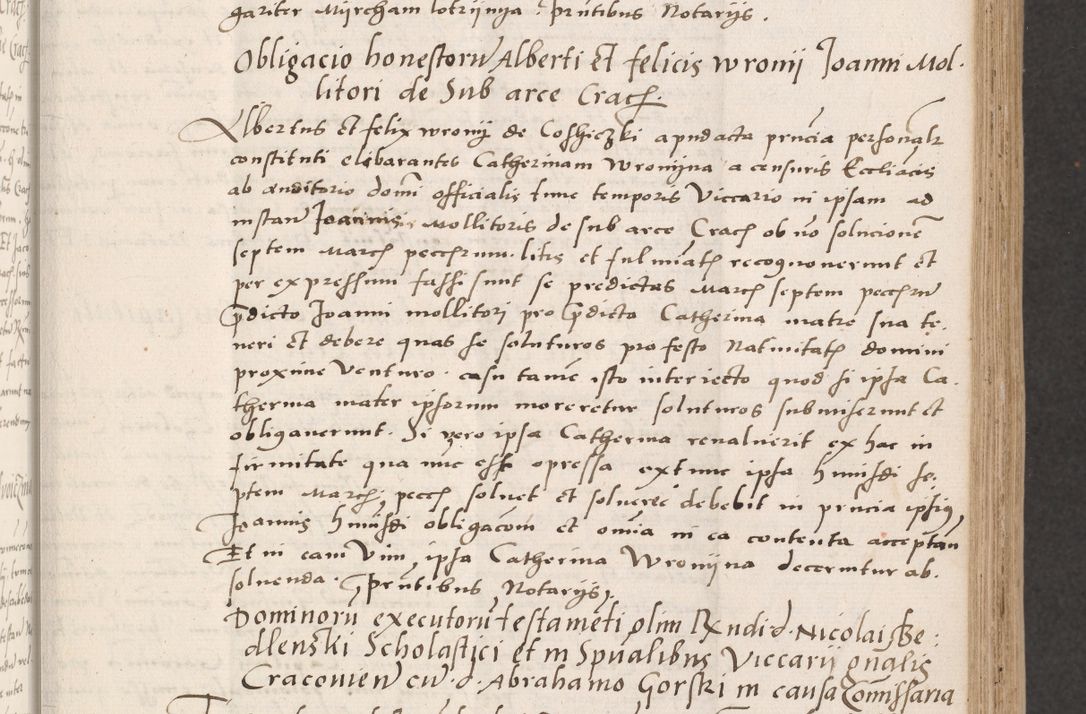 gariter Myrcham lotrijnija. Prntibus Notarijs.
Obligacio honestoru Alberti Et felicis wronij Joanni Mol-
litori de Sub arce Crac
Albertus Et felix wronij de Coshiczki apud acta prncia personalr
constituti eliberantes Catherinam Wronijna a censuris Eccliacis
ab auditorio domi officialis tunc temporis Viccario in ipsam ad
instan Joannis Mollitoris de sub arce Crac ob no solucione
septem March pecc litis et fulmiat recognouerunt Et
per expressum fassi sunt se predictas March septem
pdicto Joanni mollitori pro pdicta Catherina matre sua te-
neri Et debere quas se soluturos pro festo Natiuitat domini
proxime Venturo. casu tame isto interiecto quod si ipsa Ca-
therina mater ipsorum moreretur soluturos submiserunt et
obligauerunt. Si vero ipsa Catherina reualuerit ex hac in
firmitate qua nuc est opressa extunc ipsa hmusdi se-
ptem March pecc soluet Et soluere debebit in prncia ipsius
Joannis hmusdi obligacom et omia in ea contenta acceptan
Et in eam Vim ipsa Catherina Wronijna decernitur ab-
soluenda. Prntibus Notarijs.
Dominoru executoru testameti olim Rndi d. Nicolai Be-
dlenski Scholastici et in Spualibus Viccarij gnalis
Cracouien cu d. Abrahamo Gorski in causa Comissaria